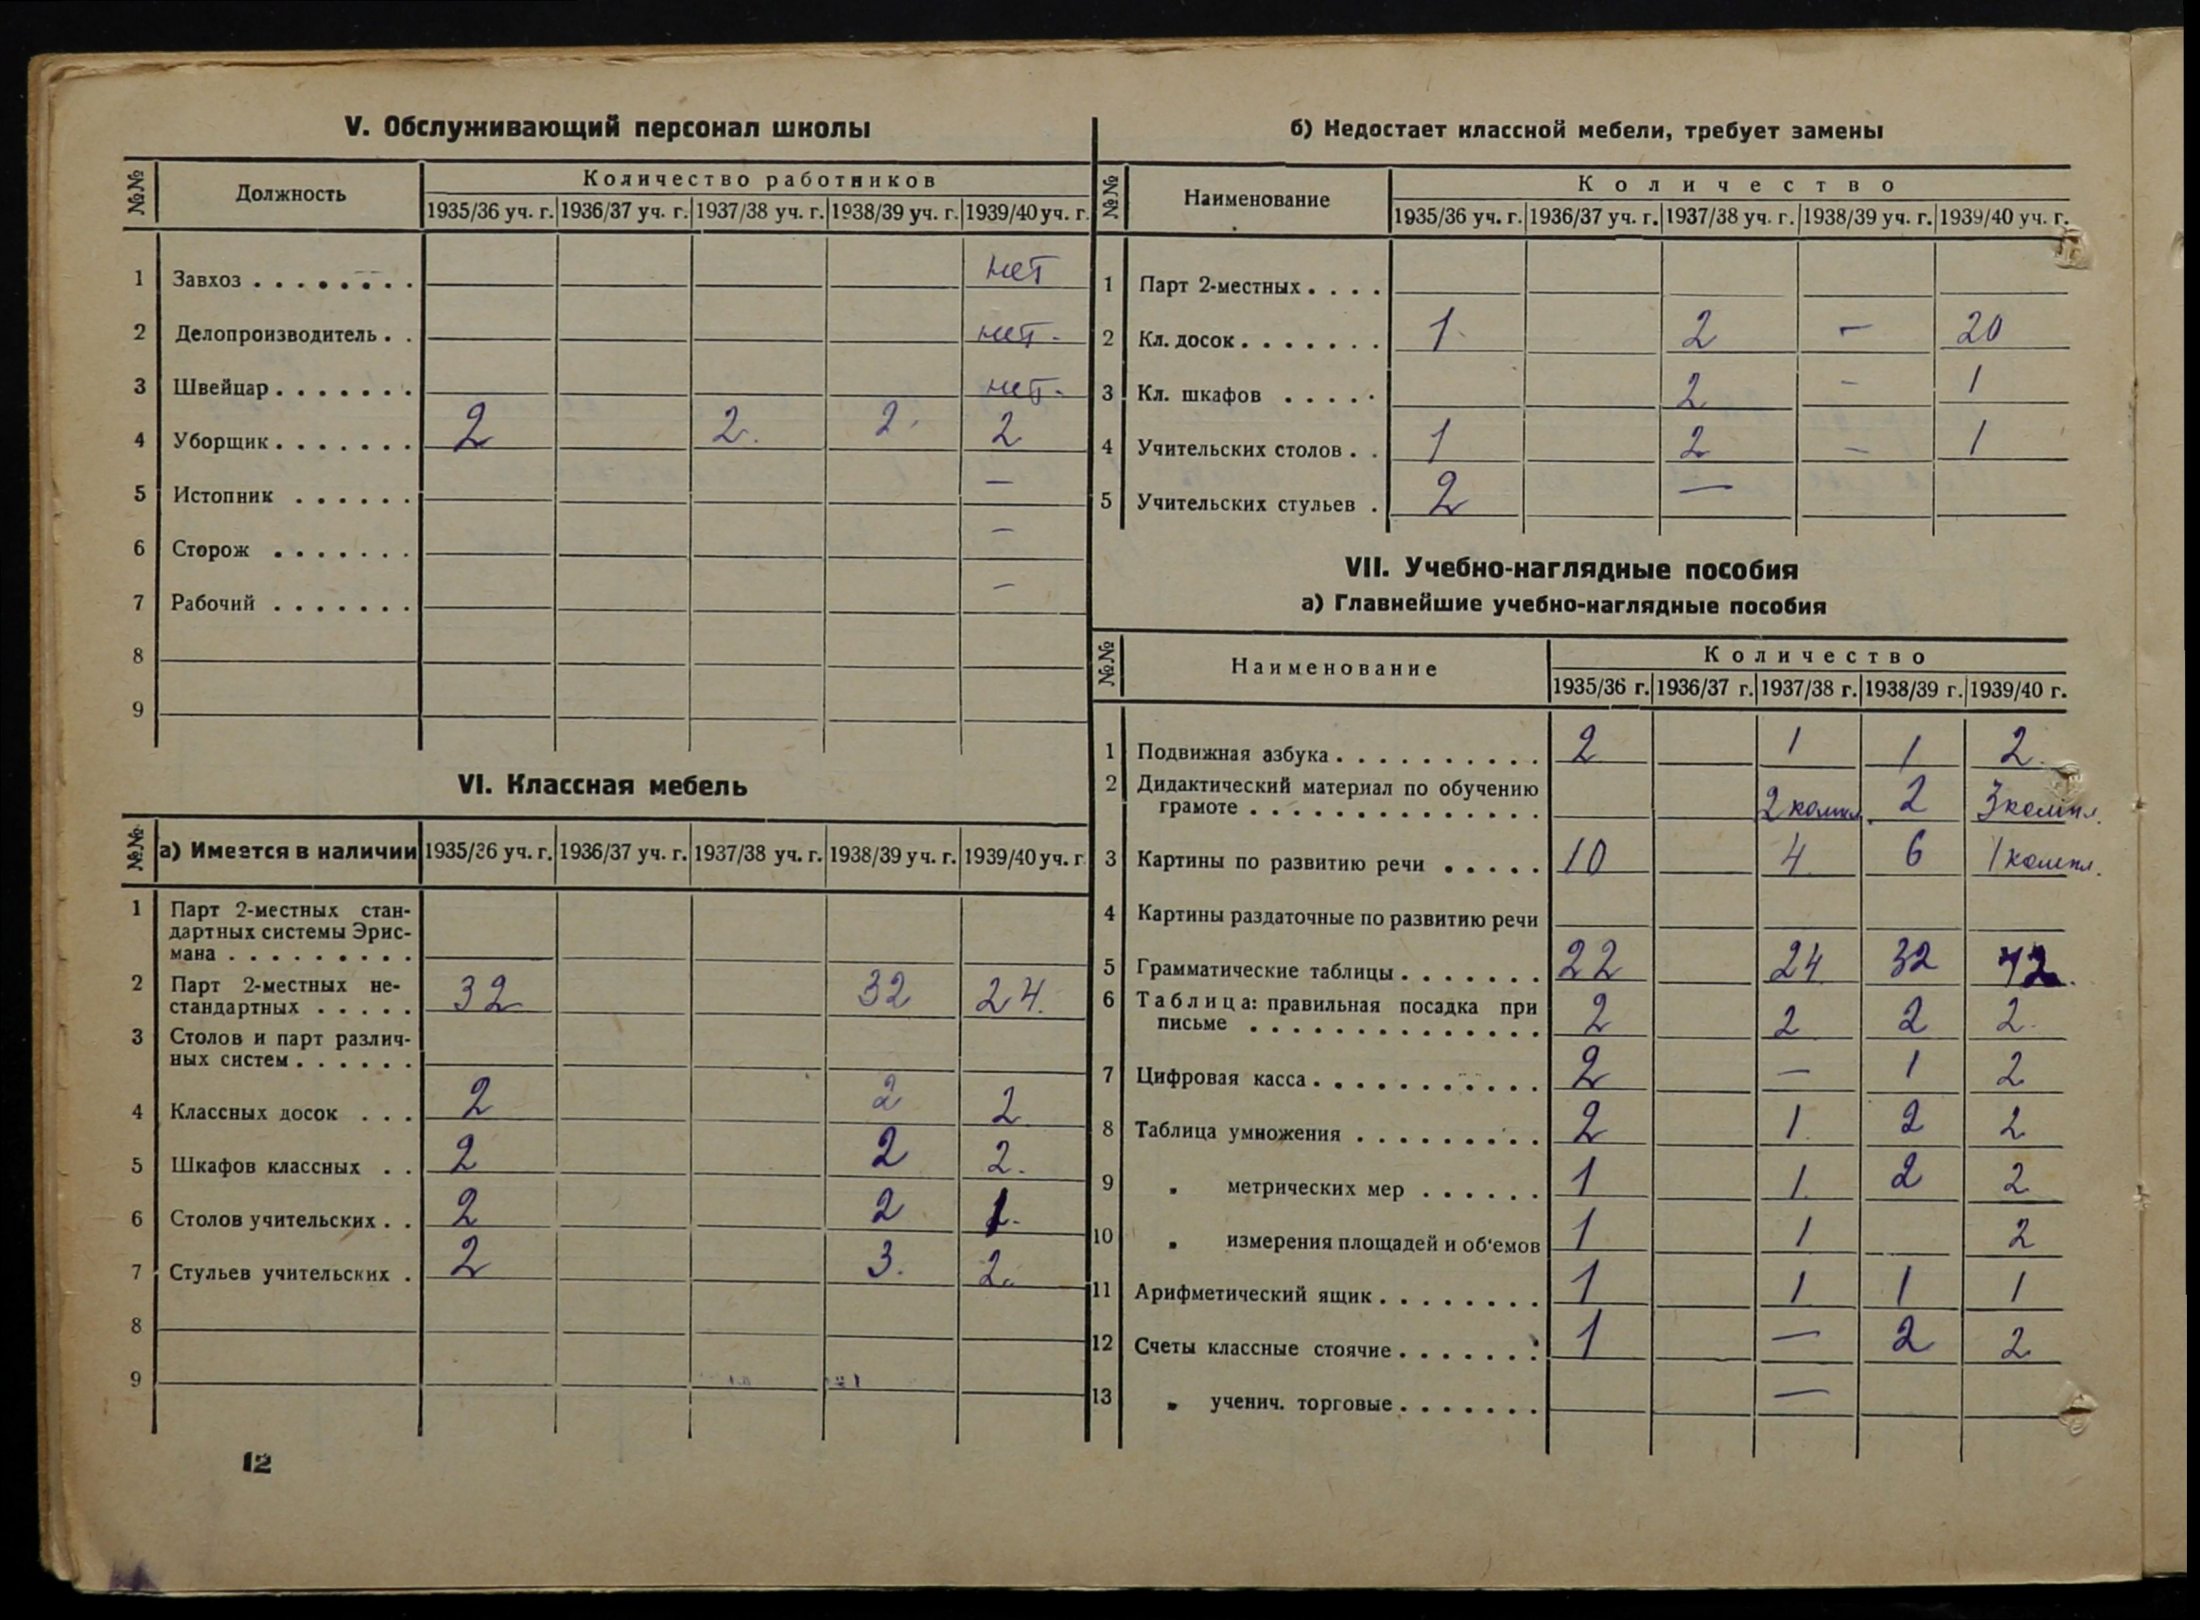 V. Обслуживающий персонал школы
№№ Должность Количество работников
1935/36 уч. г. 1936/37 уч. г. 1937/38 уч. г. 1938/39 уч. г. 1939/40 уч. г.
1 Завхоз . . . . . . . . нет
2 Делопроизводитель . . нет.
3 Швейцар . . . . . . . нет.
4 Уборщик . . . . . . . 2 2. 2. 2
5 Истопник . . . . . . —
6 Сторож . . . . . . . —
7 Рабочий . . . . . . . —
8
9
VI. Классная мебель
№№ а) Имеется в наличии 1935/36 уч. г. 1936/37 уч. г. 1937/38 уч. г. 1938/39 уч. г. 1939/40 уч. г.
1 Парт 2-местных стан-
дартных системы Эрис-
мана . . . . . . . . .
2 Парт 2-местных не-
стандартных . . . . . 32 32 24.
3 Столов и парт различ-
ных систем . . . . . .
4 Классных досок . . . 2 2 2
5 Шкафов классных . . 2 2 2.
6 Столов учительских . . 2 2 1.
7 Стульев учительских . 2 3. 2.
8
9
12
б) Недостает классной мебели, требует замены
№№ Наименование Количество
1935/36 уч. г. 1936/37 уч. г. 1937/38 уч. г. 1938/39 уч. г. 1939/40 уч. г.
1 Парт 2-местных . . . .
2 Кл. досок . . . . . . . 1 2 — 20
3 Кл. шкафов . . . . . 2 — 1
4 Учительских столов . . 1 2 — 1
5 Учительских стульев . 2 —
VII. Учебно-наглядные пособия
а) Главнейшие учебно-наглядные пособия
№№ Наименование Количество
1935/36 г. 1936/37 г. 1937/38 г. 1938/39 г. 1939/40 г.
1 Подвижная азбука . . . . . . . . . . 2 1 1 2.
2 Дидактический материал по обучению
грамоте . . . . . . . . . . . . . . 2 компл. 2 3 компл.
3 Картины по развитию речи . . . . . 10 4 6 1 компл.
4 Картины раздаточные по развитию речи
5 Грамматические таблицы . . . . . . . 22 24 32
6 Таблица: правильная посадка при
письме . . . . . . . . . . . . . . 2 2 2 2.
7 Цифровая касса . . . . . . . . . . . 2 — 1 2
8 Таблица умножения . . . . . . . . . 2 1 2 2
9 „ метрических мер . . . . . . 1 1 2 2
10 „ измерения площадей и об'емов 1 1 2
11 Арифметический ящик . . . . . . . . 1 1 1 1
12 Счеты классные стоячие . . . . . . . 1 — 2 2
13 „ ученич. торговые . . . . . . . —